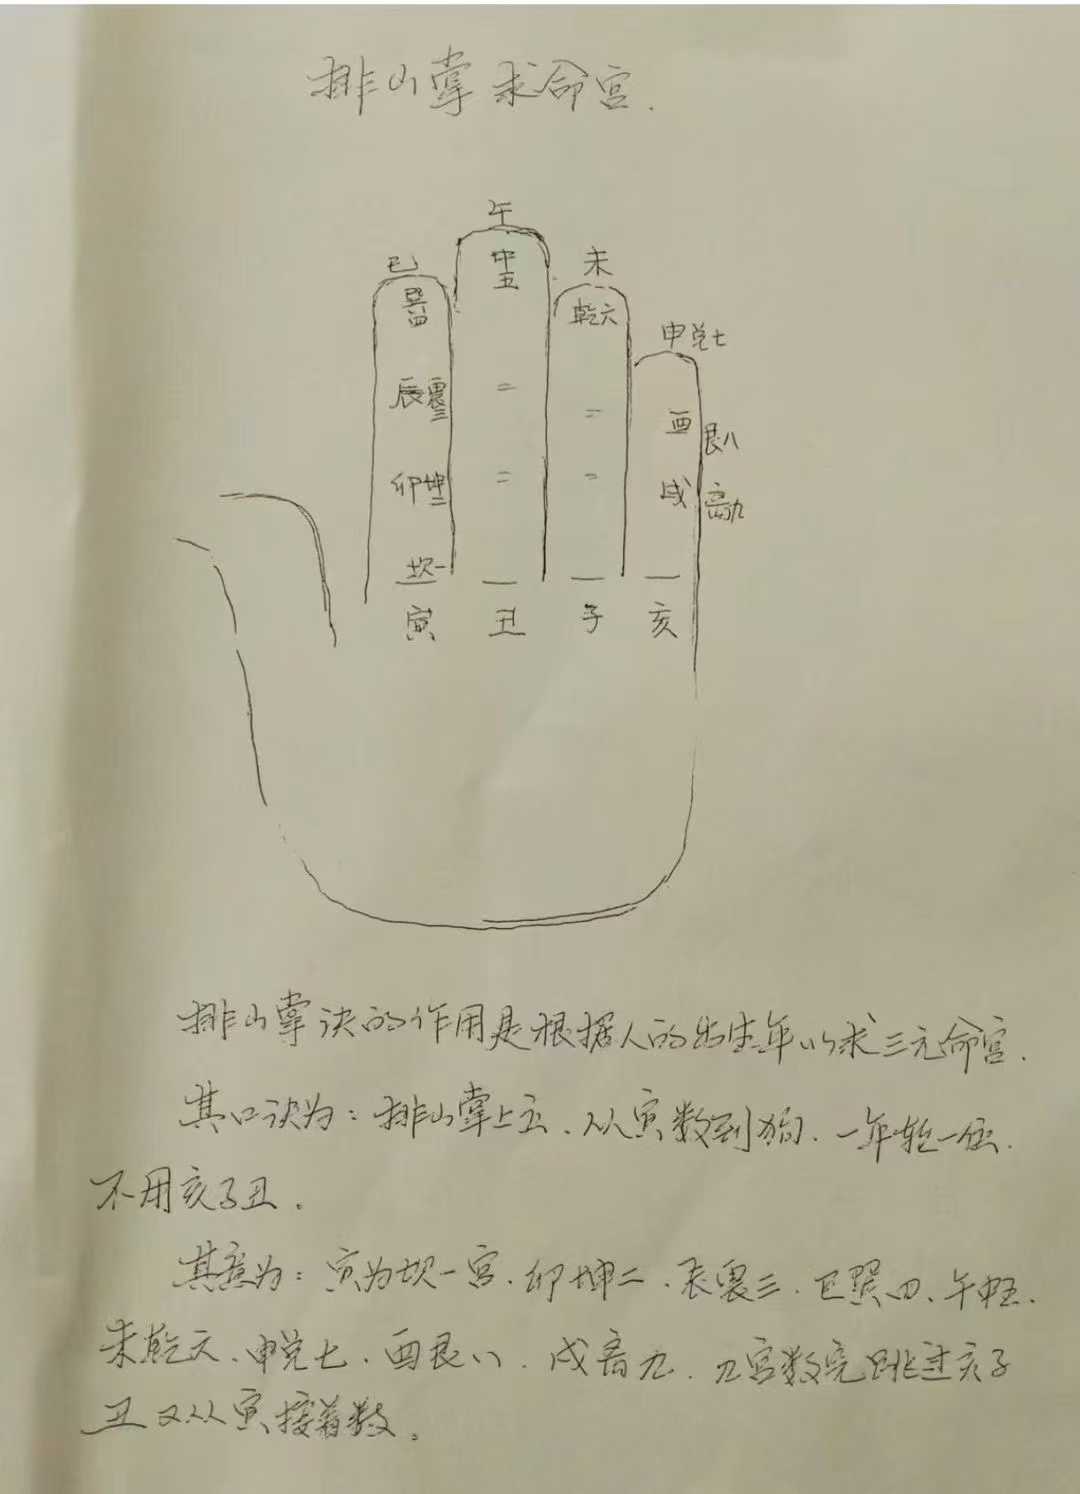 排山掌求命宫.
午
巳
中五
未
巽四
乾六
申兑七
辰震三
酉
艮八
卯坤二
戌
离九
坎一
寅 丑 子 亥
排山掌诀的作用是根据人的出生年以求三元命宫.
其口诀为：排山掌上立、从寅数到狗、一年轮一位.
不用亥子丑。
其意为：寅为坎一宫、卯坤二、辰震三、巳巽四、午中五、
未乾六、申兑七、酉艮八、戌离九、九宫数完跳过亥子
丑又从寅接着数。